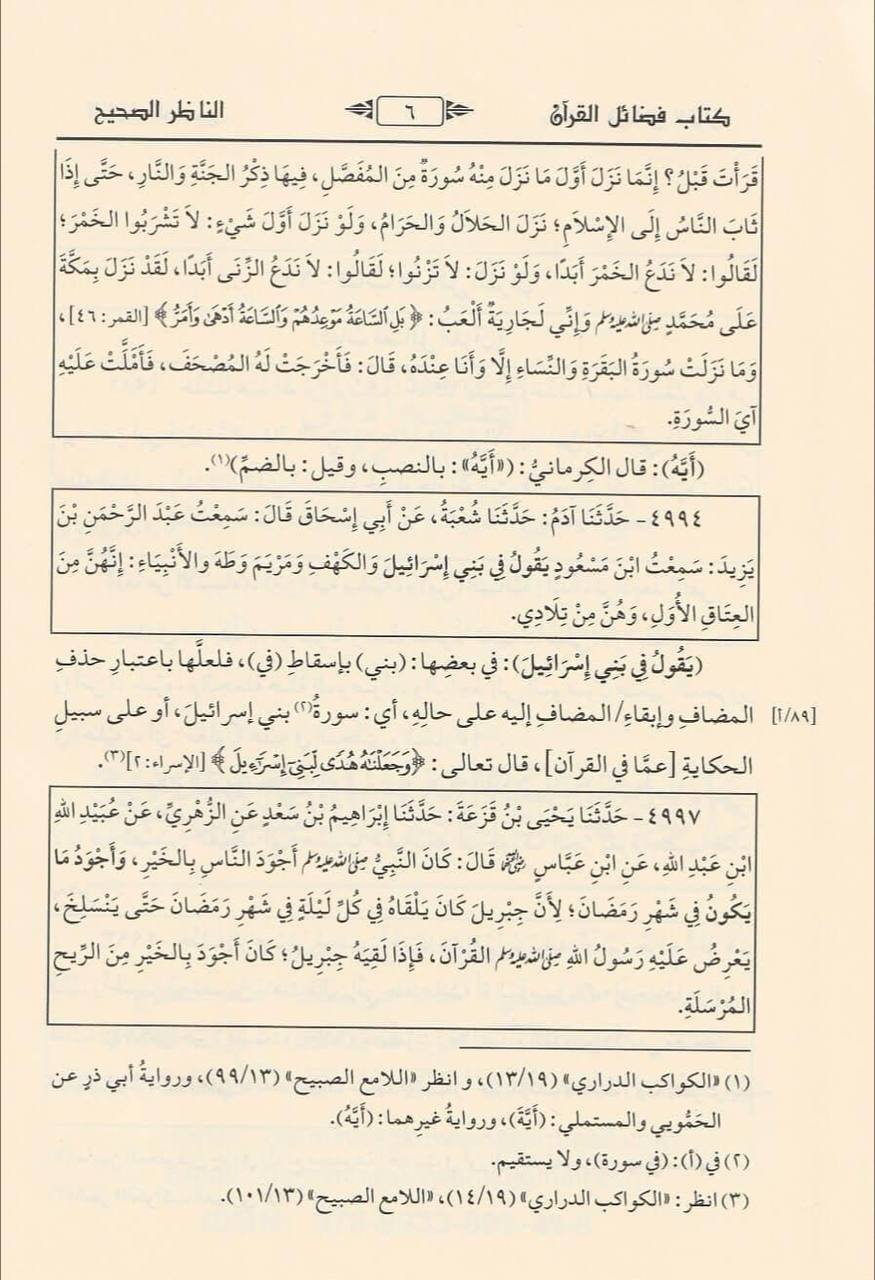 كتاب فضائل القرآن ٦ الناظر الصحيح
قَرَأْتَ قَبْلُ؟ إِنَّمَا نَزَلَ أَوَّلَ مَا نَزَلَ مِنْهُ سُورَةٌ مِنَ المُفَصَّلِ، فِيهَا ذِكْرُ الجَنَّةِ وَالنَّارِ، حَتَّى إِذَا
ثَابَ النَّاسُ إِلَى الإِسْلَامِ؛ نَزَلَ الحَلَالُ وَالحَرَامُ، وَلَوْ نَزَلَ أَوَّلَ شَيْءٍ: لَا تَشْرَبُوا الخَمْرَ؛
لَقَالُوا: لَا نَدَعُ الخَمْرَ أَبَدًا، وَلَوْ نَزَلَ: لَا تَزْنُوا؛ لَقَالُوا: لَا نَدَعُ الزِّنَى أَبَدًا، لَقَدْ نَزَلَ بِمَكَّةَ
عَلَى مُحَمَّدٍ صلى الله عليه وسلم وَإِنِّي لَجَارِيَةٌ أَلْعَبُ: ﴿بَلِ ٱلسَّاعَةُ مَوْعِدُهُمْ وَٱلسَّاعَةُ أَدْهَىٰ وَأَمَرُّ﴾ [القمر: ٤٦]،
وَمَا نَزَلَتْ سُورَةُ البَقَرَةِ وَالنِّسَاءِ إِلَّا وَأَنَا عِنْدَهُ، قَالَ: فَأَخْرَجَتْ لَهُ المُصْحَفَ، فَأَمْلَّتْ عَلَيْهِ
آيَ السُّورَةِ.
(أَيَّهُ): قال الكِرمانيُّ: («أَيَّهُ»: بالنصبِ، وقيل: بالضمِّ)(١).
٤٩٩٤- حَدَّثَنَا آدَمُ: حَدَّثَنَا شُعْبَةُ، عَنْ أَبِي إِسْحَاقَ قَالَ: سَمِعْتُ عَبْدَ الرَّحْمَنِ بْنَ
يَزِيدَ: سَمِعْتُ ابْنَ مَسْعُودٍ يَقُولُ فِي بَنِي إِسْرَائِيلَ وَالكَهْفِ وَمَرْيَمَ وَطَهَ وَالأَنْبِيَاءِ: إِنَّهُنَّ مِنَ
العِتَاقِ الأُوَلِ، وَهُنَّ مِنْ تِلَادِي.
(يَقُولُ فِي بَنِي إِسْرَائِيلَ): في بعضِها: (بني) بإسقاطِ (في)، فلعلَّها باعتبارِ حذفِ
المضافِ وإبقاءِ/ المضافِ إليه على حالِهِ، أي: سورةُ(٢) بني إسرائيلَ، أو على سبيلِ [٨٩/أ]
الحكايةِ [عمَّا في القرآن]، قال تعالى: ﴿وَجَعَلْنَٰهُ هُدًى لِّبَنِىٓ إِسْرَٰٓءِيلَ﴾ [الإسراء: ٢](٣).
٤٩٩٧- حَدَّثَنَا يَحْيَى بْنُ قَزَعَةَ: حَدَّثَنَا إِبْرَاهِيمُ بْنُ سَعْدٍ عَنِ الزُّهْرِيِّ، عَنْ عُبَيْدِ اللهِ
ابْنِ عَبْدِ اللهِ، عَنِ ابْنِ عَبَّاسٍ رضي الله عنهما قَالَ: كَانَ النَّبِيُّ صلى الله عليه وسلم أَجْوَدَ النَّاسِ بِالخَيْرِ، وَأَجْوَدُ مَا
يَكُونُ فِي شَهْرِ رَمَضَانَ؛ لِأَنَّ جِبْرِيلَ كَانَ يَلْقَاهُ فِي كُلِّ لَيْلَةٍ فِي شَهْرِ رَمَضَانَ حَتَّى يَنْسَلِخَ،
يَعْرِضُ عَلَيْهِ رَسُولُ اللهِ صلى الله عليه وسلم القُرْآنَ، فَإِذَا لَقِيَهُ جِبْرِيلُ؛ كَانَ أَجْوَدَ بِالخَيْرِ مِنَ الرِّيحِ
المُرْسَلَةِ.
(١) «الكواكب الدراري» (١٣/١٩)، و انظر «اللامع الصبيح» (٩٩/١٣)، وروايةُ أبي ذرٍ عن
الحَمُّويي والمستملي: (أَيَّةَ)، وروايةُ غيرِهما: (أَيَّهُ).
(٢) في (أ): (في سورة)، ولا يستقيم.
(٣) انظر: «الكواكب الدراري» (١٤/١٩)، «اللامع الصبيح» (١٠١/١٣).